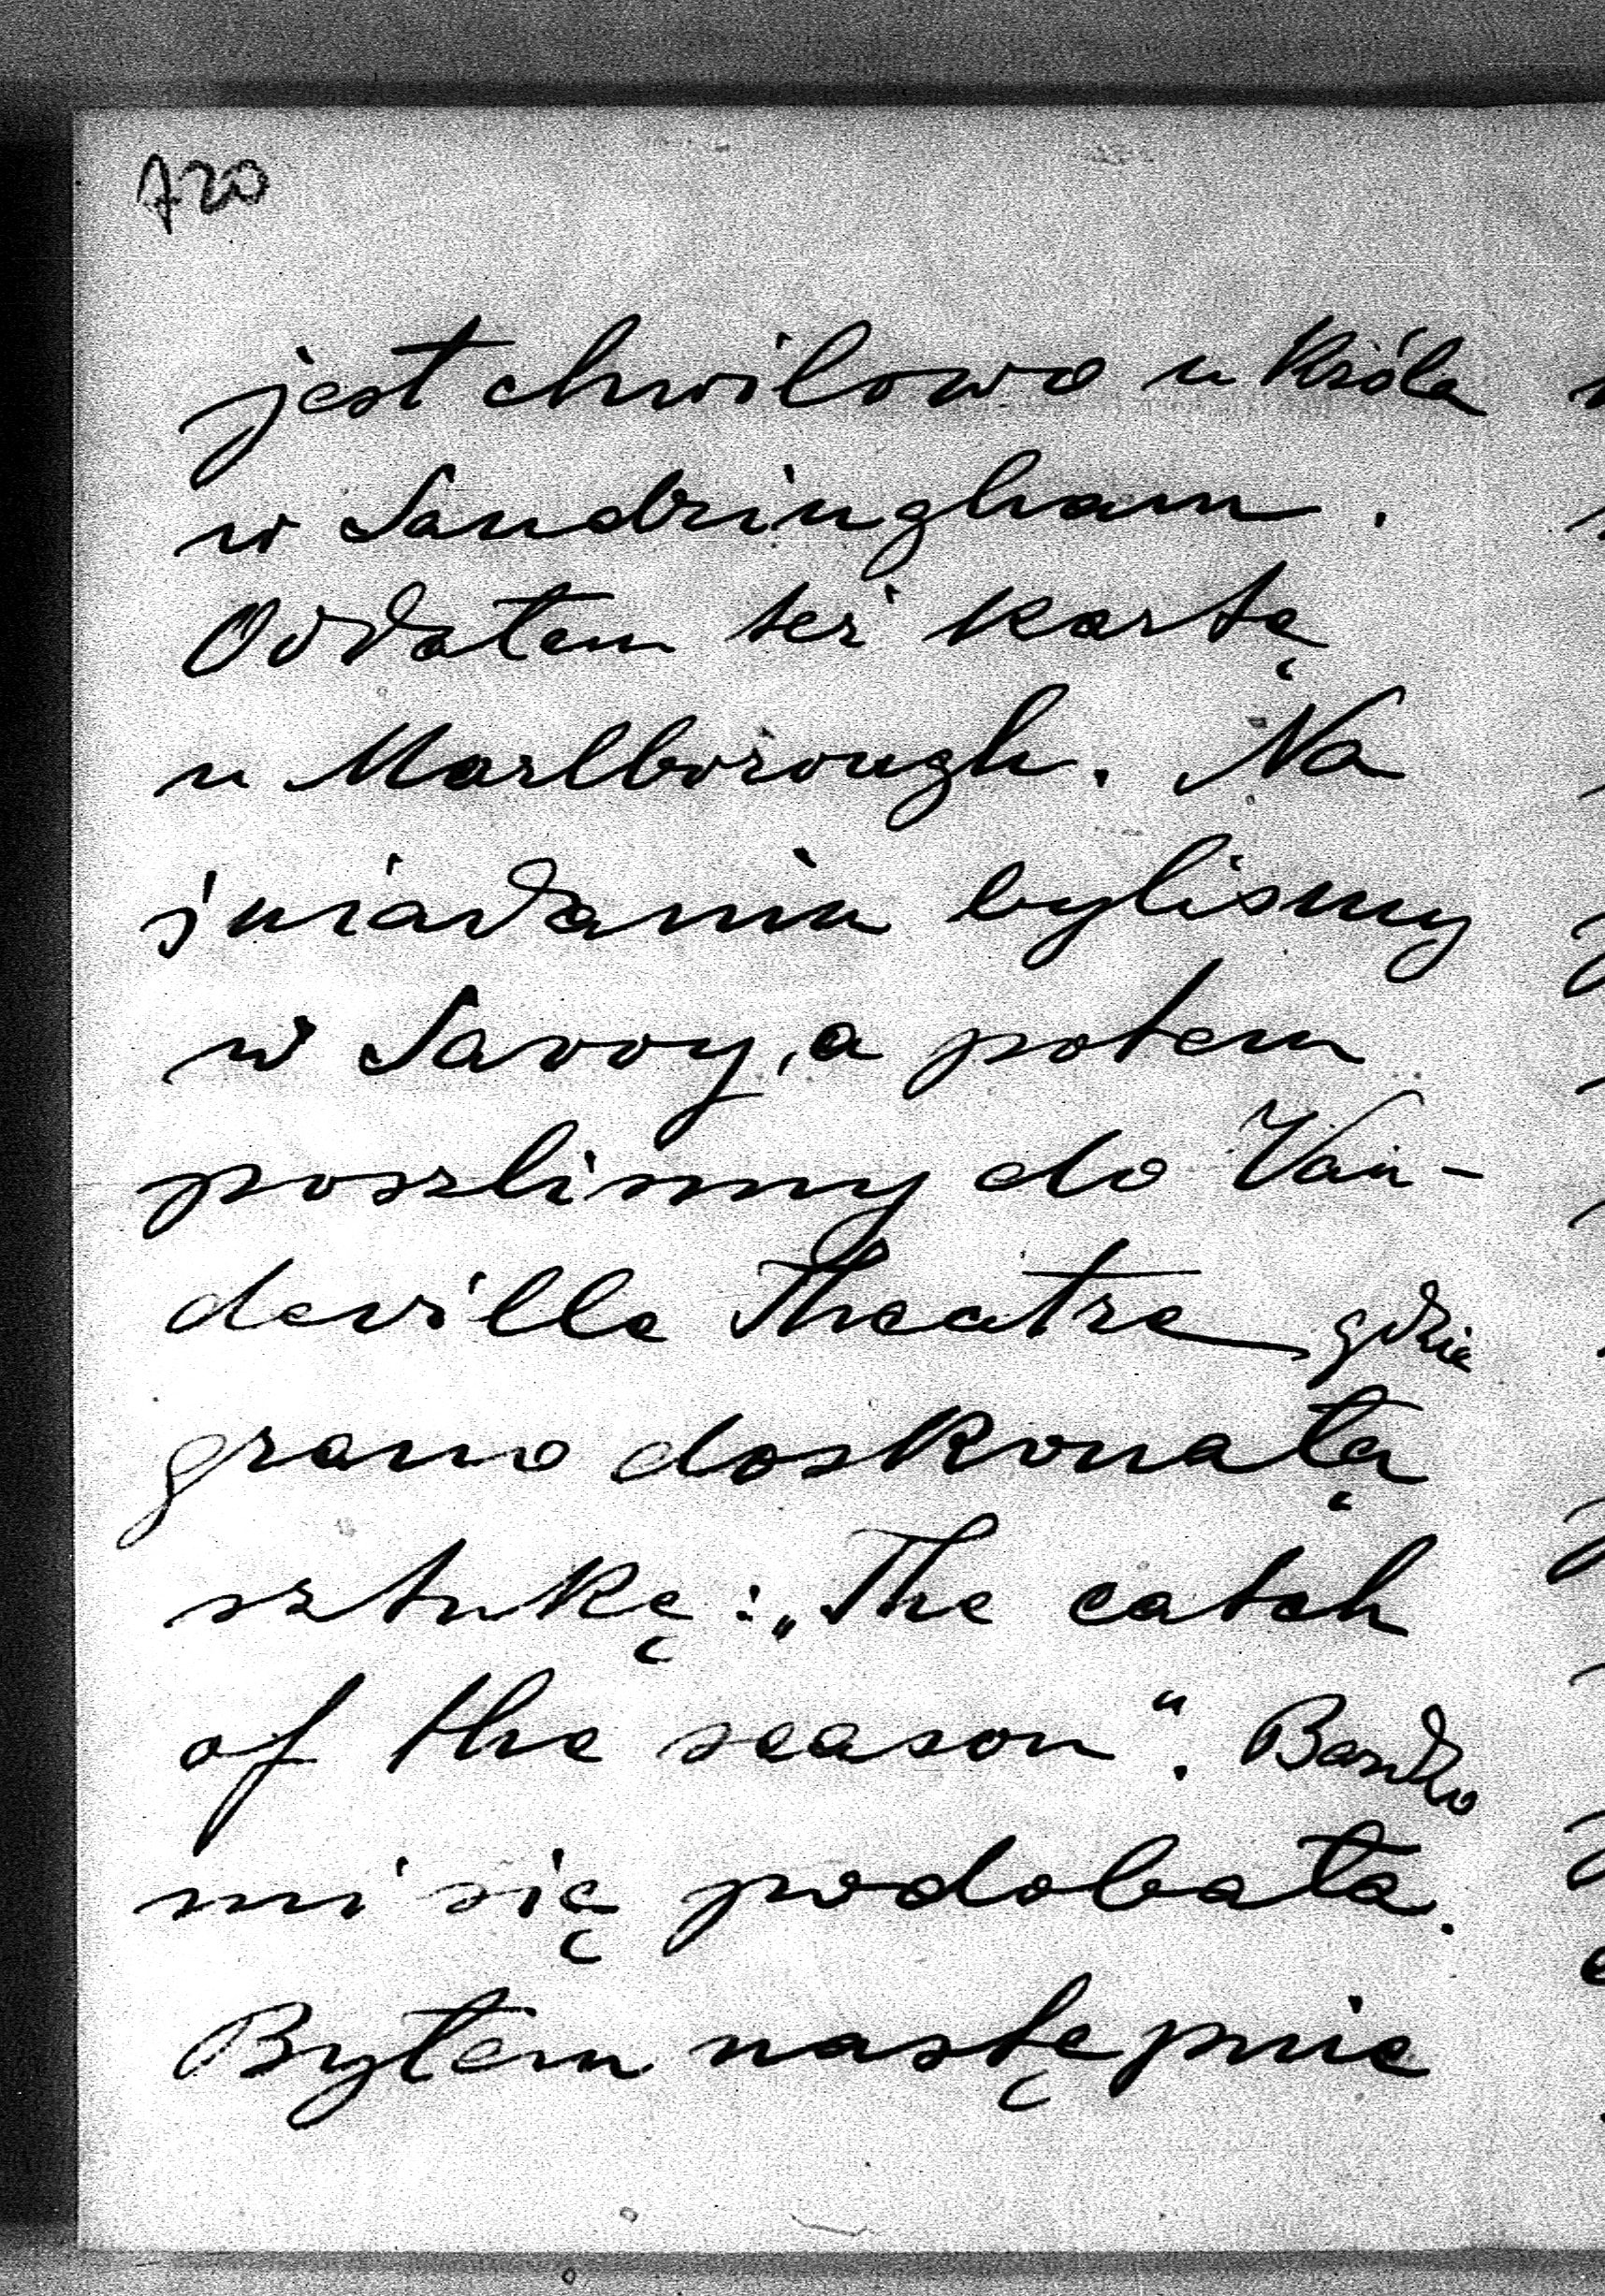 720
jest chwilowo u Króla
w Sandringham.
Oddałem też kartę
u Marlborough. Na
śniadaniu byliśmy
w Savoy, a potem
poszlismy do Vau-
deville Theatre gdzie
grano doskonałą
sztukę: „The catch
of the season“. Bardzo
mi się podobała.
Byłem następnie